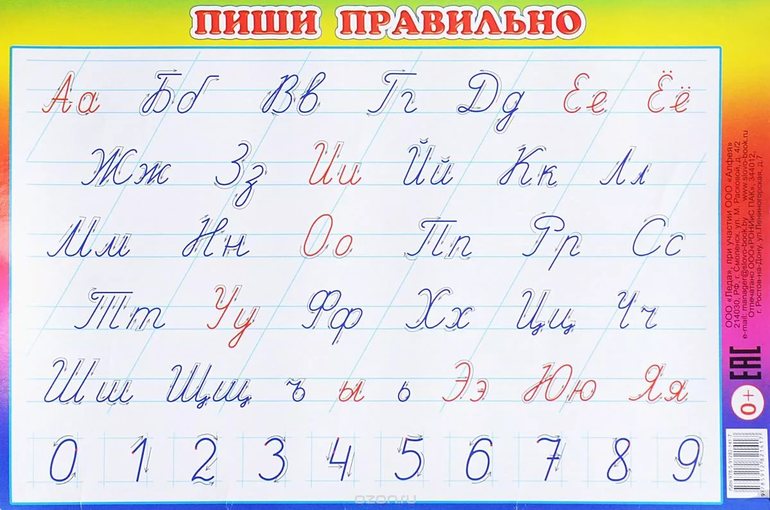 ПИШИ ПРАВИЛЬНО
Аа Бб Вв Гг Дд Ее Ёё
Жж Зз Ии Йй Кк Лл
Мм Нн Оо Пп Рр Сс
Тт Уу Фф Хх Цц Чч
Шш Щщ ъ ы ь Ээ Юю Яя
0 1 2 3 4 5 6 7 8 9
ООО «Леда», при участии ООО «Алфея»
214030, РФ, г. Смоленск, ул. М. Расковой, д. 4/2
www.slovo-book.ru
г. Ростов-на-Дону, ул. Ленинногорская, д. 7
EAC
0+
ozon.ru